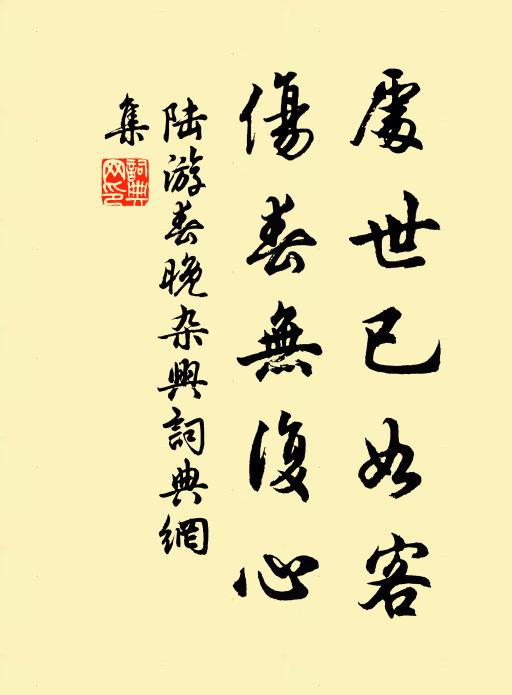 處世已如客
傷春無復心
陆游春晚杂興詞典網
集
詞典
网印